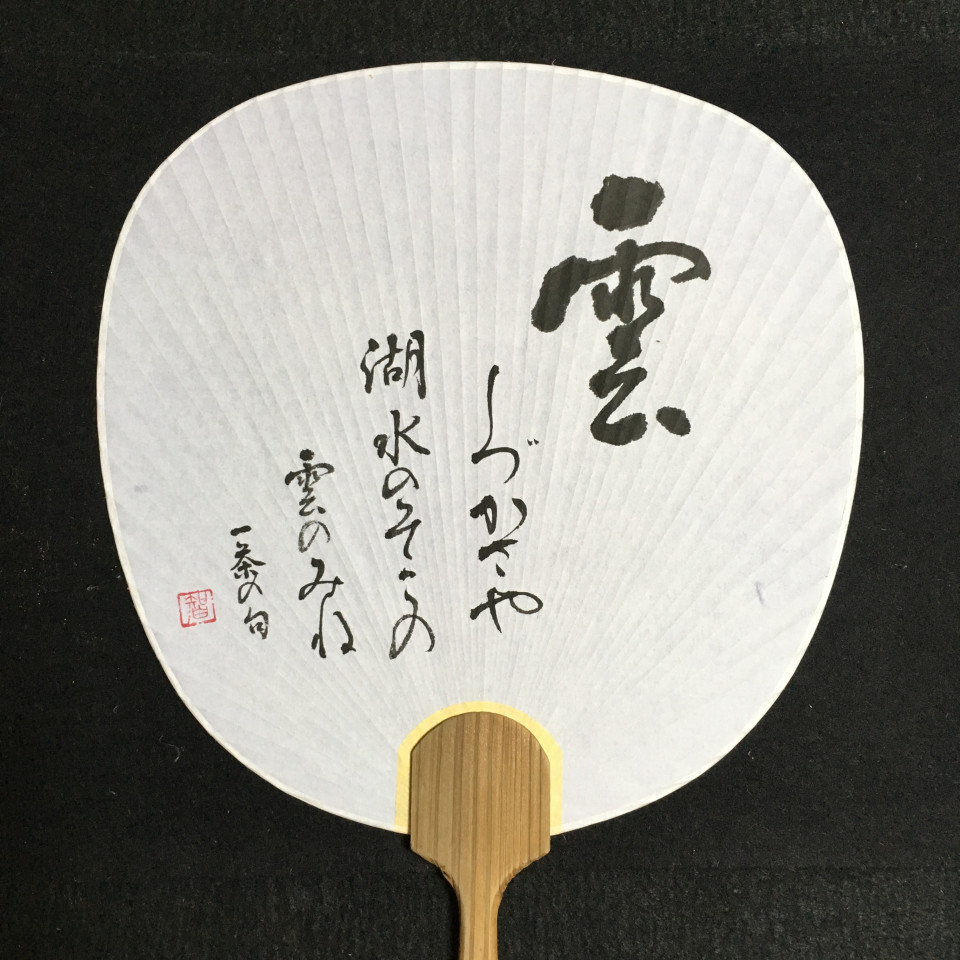 雲
しづかさや
湖水のそこの
雲のみね
一茶の句
智